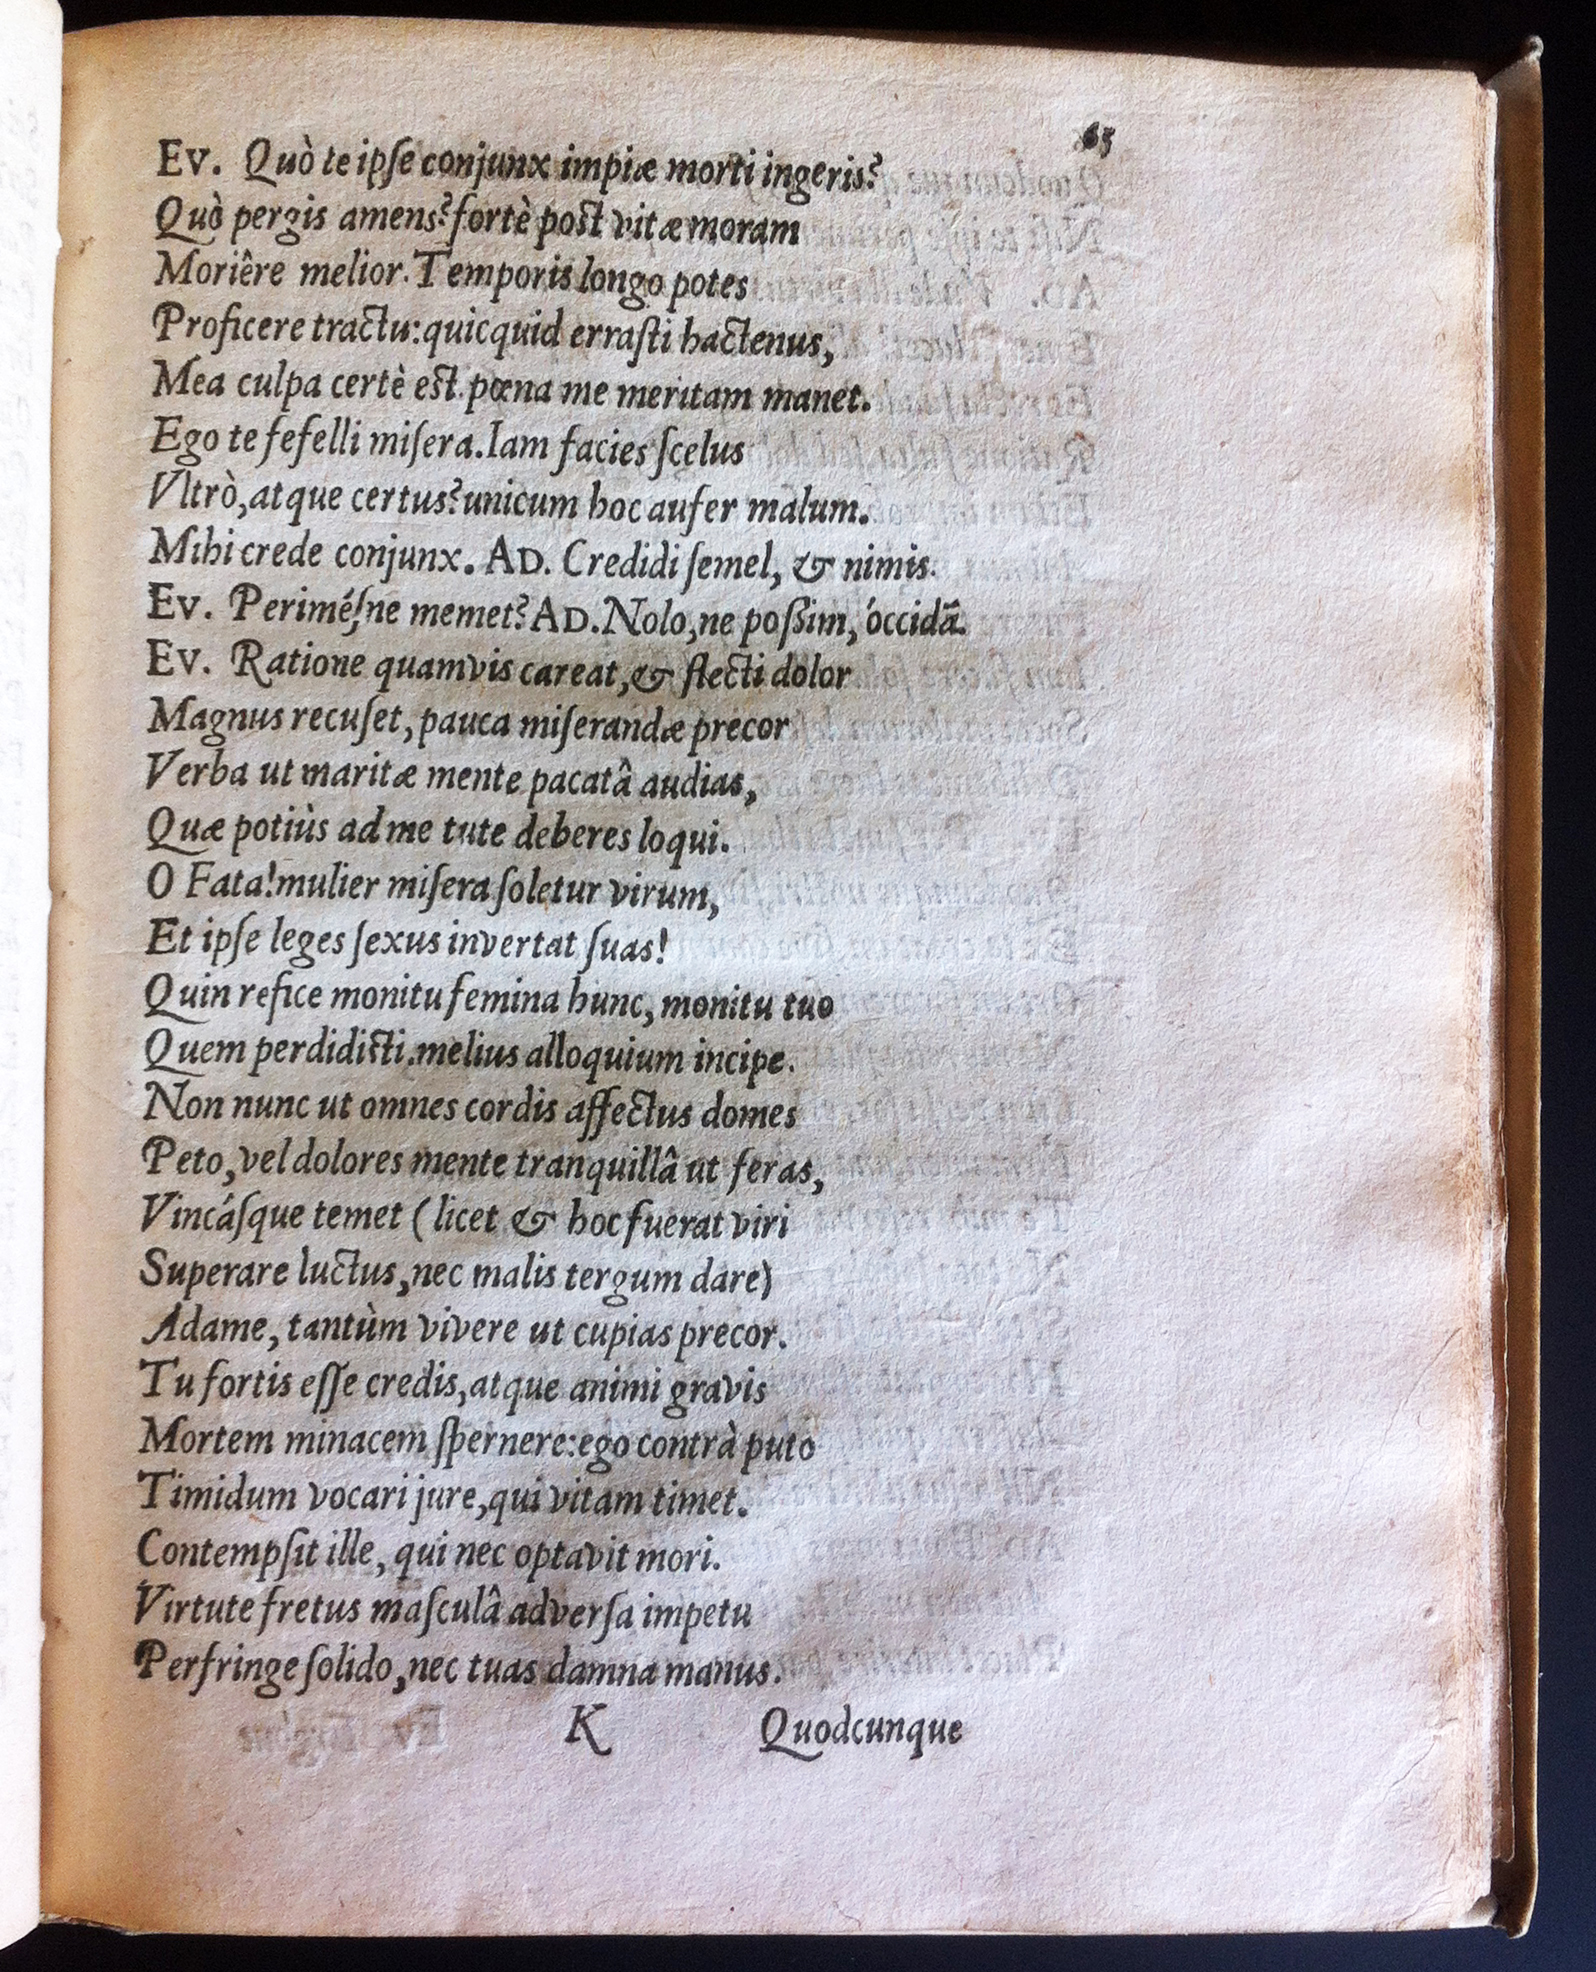 65
Ev. Quò te ipſe conjunx impiæ morti ingeris?
Quò pergis amens? fortè post vitæ moram
Moriêre melior. Temporis longo potes
Proficere tractu: quicquid erraſti hactenus,
Mea culpa certè est. pœna me meritam manet.
Ego te fefelli miſera. Iam facies ſcelus
Vltrò, atque certus? unicum hoc aufer malum.
Mihi crede conjunx. AD. Credidi ſemel, & nimis.
Ev. Perimeſ́ne memet? AD. Nolo, ne poßim, óccidā.
Ev. Ratione quamvis careat, & flecti dolor
Magnus recuſet, pauca miſerandæ precor
Verba ut maritæ mente pacatâ audias,
Quæ potiùs ad me tute deberes loqui.
O Fata! mulier miſera ſoletur virum,
Et ipſe leges ſexus invertat ſuas!
Quin refice monitu femina hunc, monitu tuo
Quem perdidisti. melius alloquium incipe.
Non nunc ut omnes cordis affectus domes
Peto, vel dolores mente tranquillâ ut feras,
Vincáſque temet (licet & hoc fuerat viri
Superare luctus, nec malis tergum dare)
Adame, tantùm vivere ut cupias precor.
Tu fortis eſſe credis, atque animi gravis
Mortem minacem ſpernere: ego contrà puto
Timidum vocari jure, qui vitam timet.
Contempſit ille, qui nec optavit mori.
Virtute fretus maſculâ adverſa impetu
Perfringe ſolido, nec tuas damna manus.
K Quodcunque